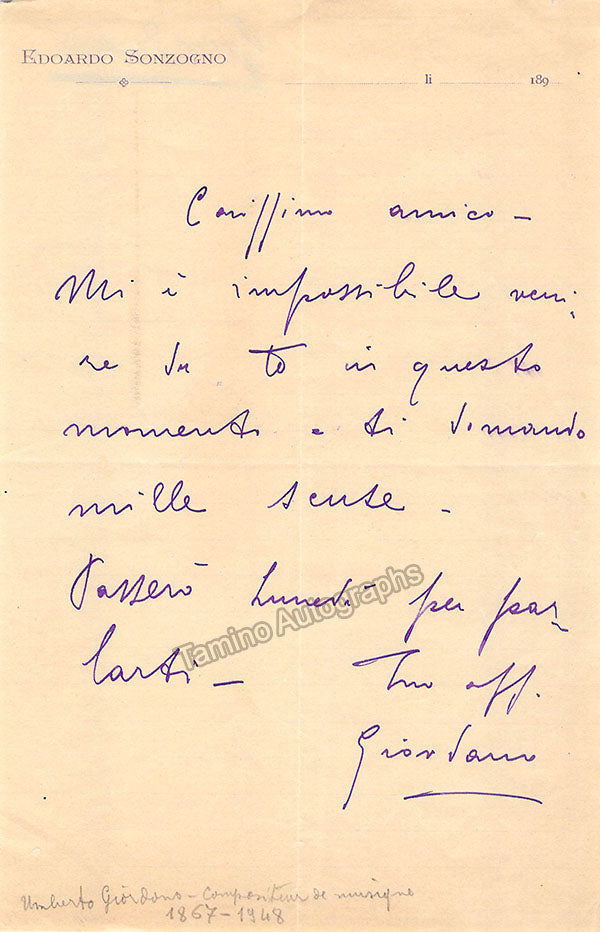 EDOARDO SONZOGNO
li 189
Cariſſimo amico –
Mi è impossibile veni-
re da te in questo
momento e ti domando
mille scuse –
Passerò Lunedì per par-
larti – Tuo aff.
Giordano
Tamino Autographs
Umberto Giordano – Compositeur de musique
1867–1948